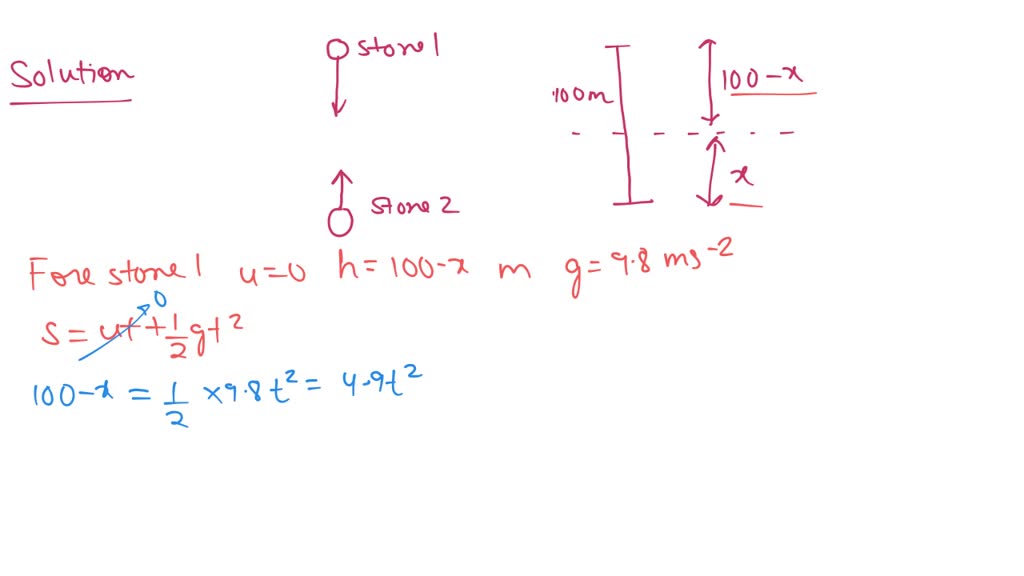 Solution
stone 1
100m
100-x
x
stone 2
Fore stone 1 u=0 h=100-x m g=9.8 ms⁻²
0
s = ut + 1/2 gt²
100-x = 1/2 × 9.8t² = 4.9t²